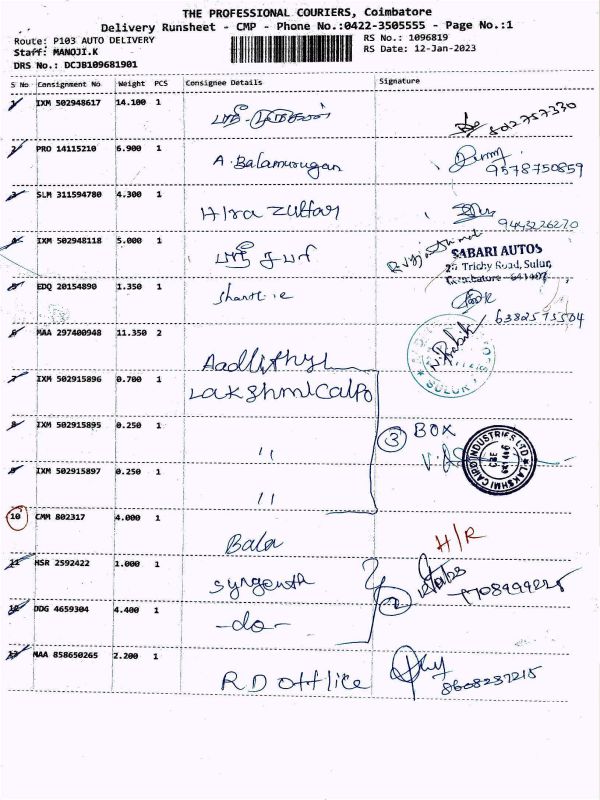 THE PROFESSIONAL COURIERS, Coimbatore
Delivery Runsheet - CMP - Phone No.:0422-3505555 - Page No.:1
Route: P103 AUTO DELIVERY RS No.: 1096819
Staff: MANOJI.K RS Date: 12-Jan-2023
DRS No.: DCJB109681901
S No Consignment No Weight PCS Consignee Details Signature
1 IXM 502948617 14.100 1
2 PRO 14115210 6.900 1 A. Balamurugan 9578750859
3 SLM 311594780 4.300 1 9443226270
4 IXM 502948118 5.000 1
SABARI AUTOS
Trichy Road, Sulur,
5 EDQ 20154890 1.350 1 6382595504
6 MAA 297400948 11.350 2
SULUR
7 IXM 502915896 0.700 1 Lakshmi Caipo
8 IXM 502915895 0.250 1 " 3 BOX
9 IXM 502915897 0.250 1 "
LAKSHMI CAIPO INDUSTRIES LTD
CBE
10 CMM 802317 4.000 1 Bala H/R
11 HSR 2592422 1.000 1
2
12 DDG 4659304 4.400 1 -do-
13 MAA 858650265 2.200 1 RD office 8608237215